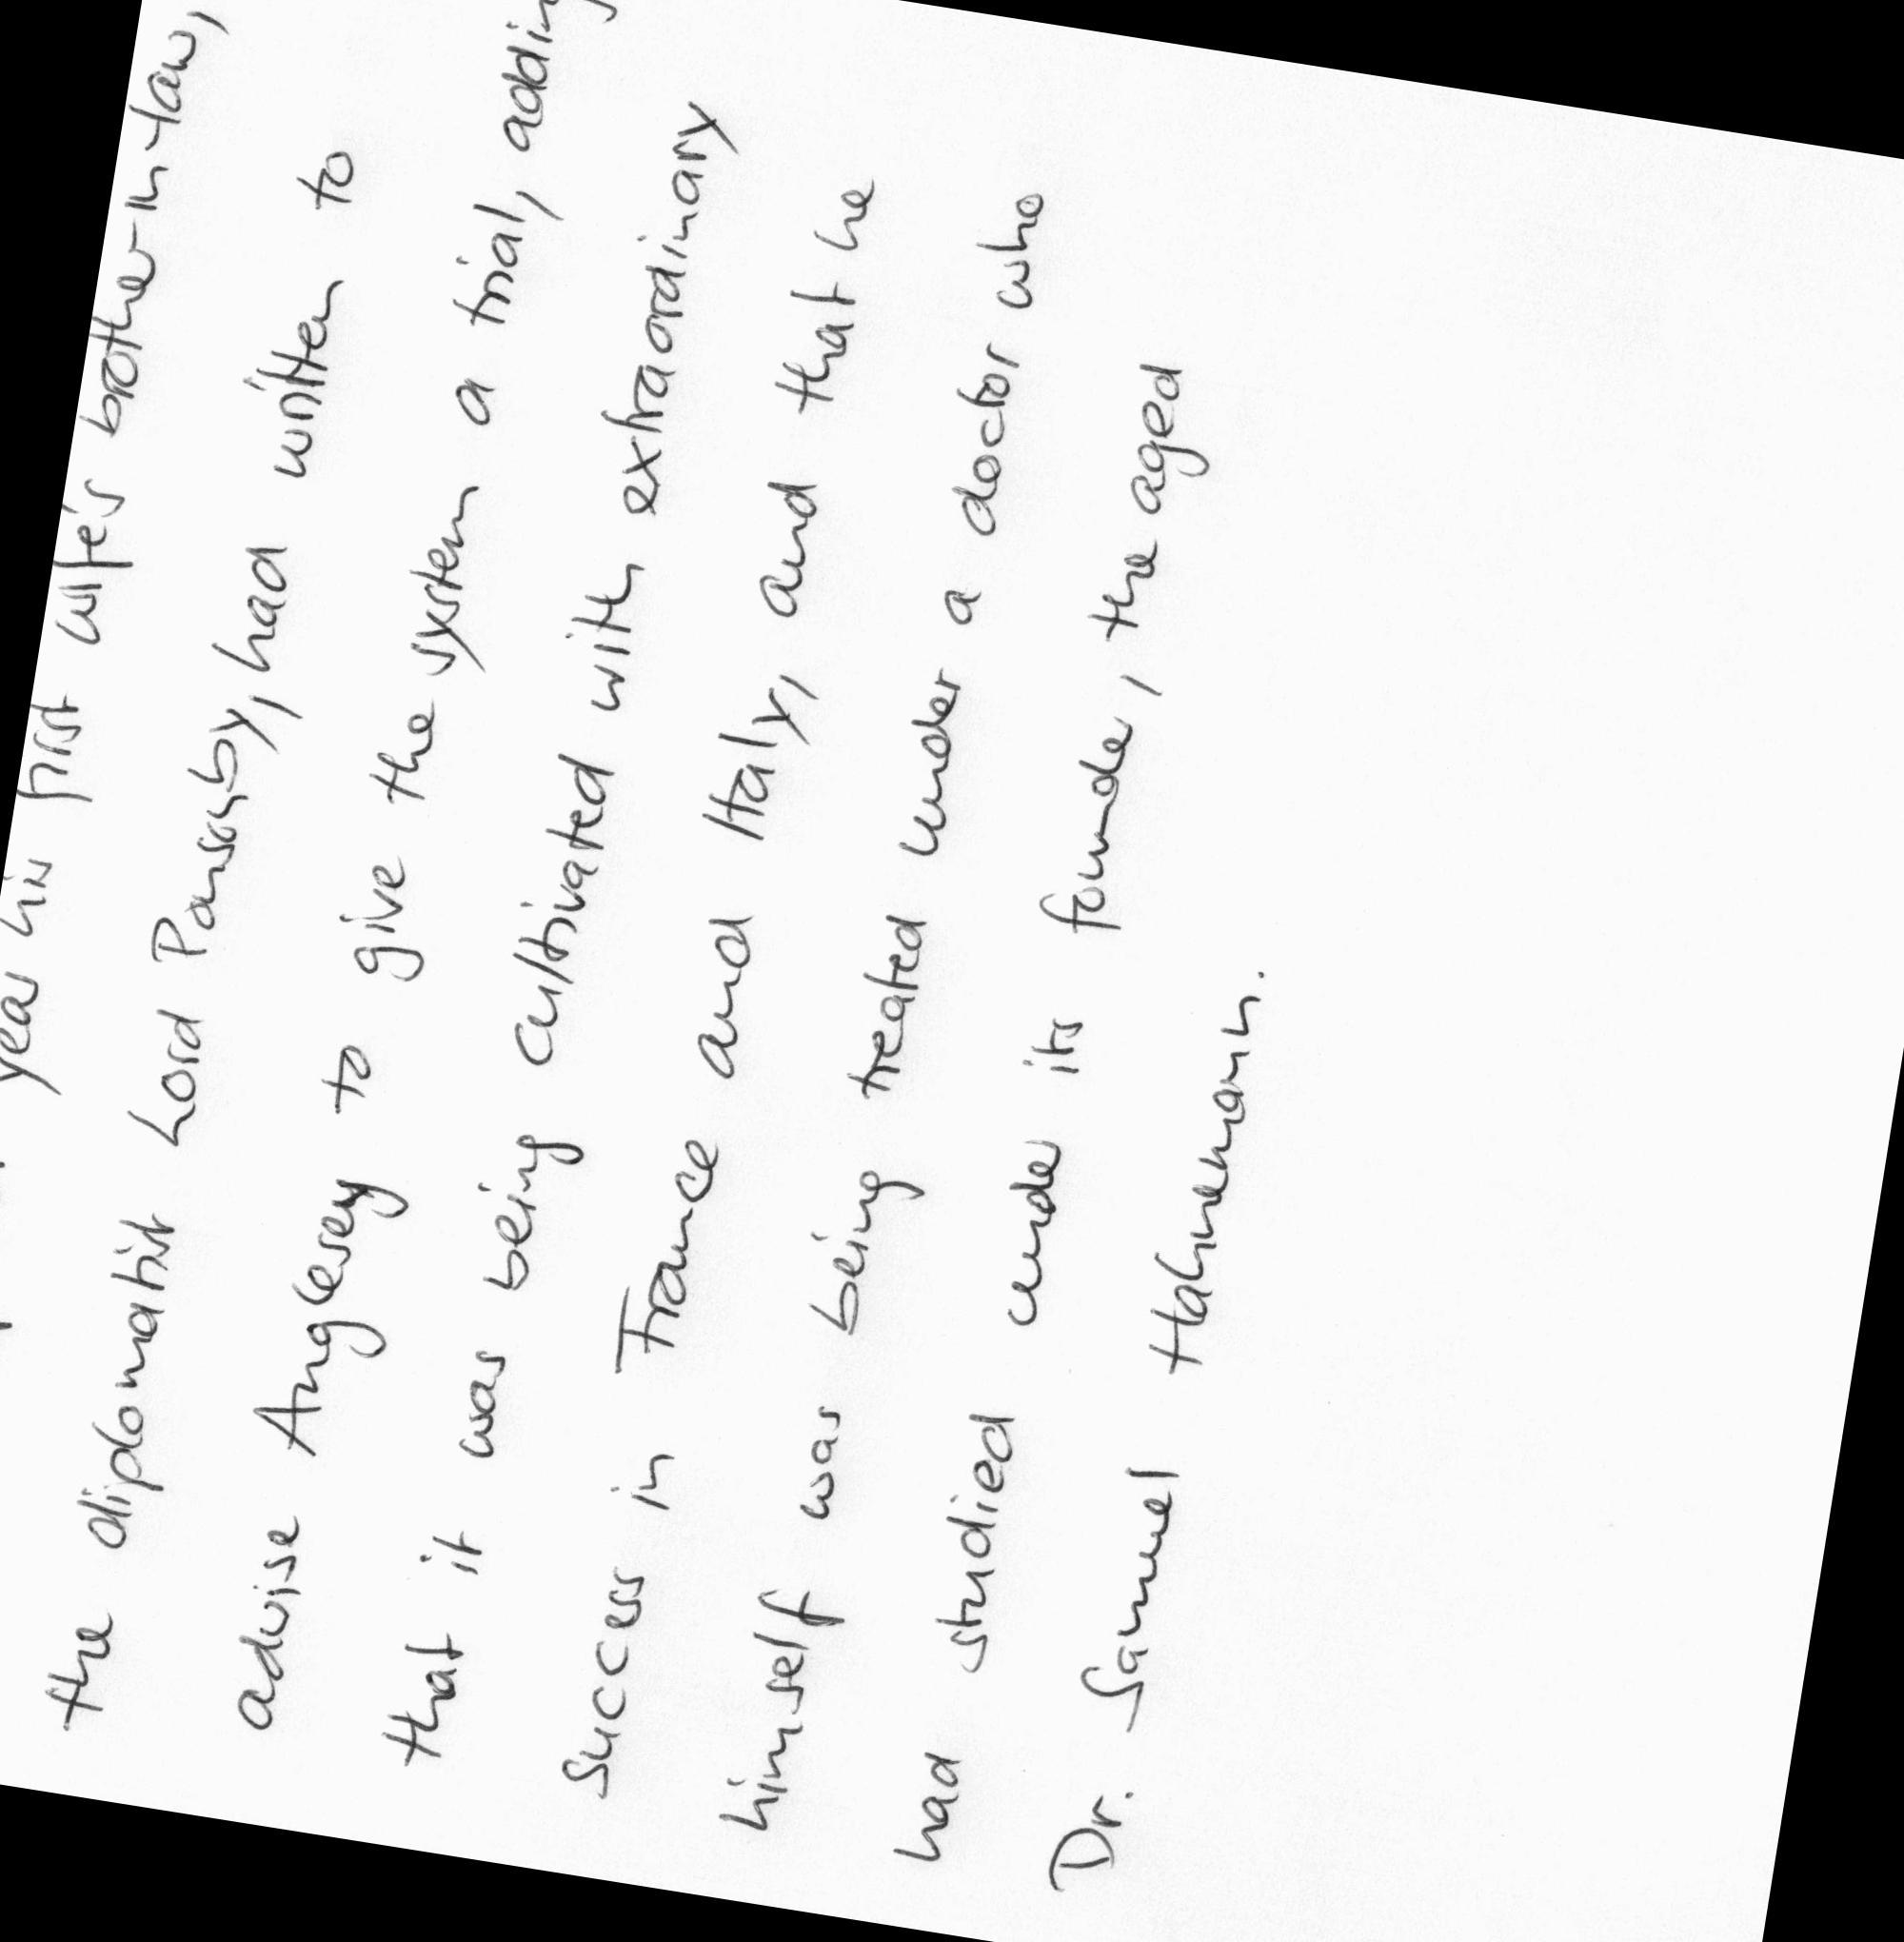 year his first wife's brother-in-law,
the diplomatist Lord Ponsonby, had written to
advise Anglesey to give the system a trial, adding
that it was being cultivated with extraordinary
success in France and Italy, and that he
himself was being treated under a doctor who
had studied under its founder, the aged
Dr. Samuel Hahnemann.